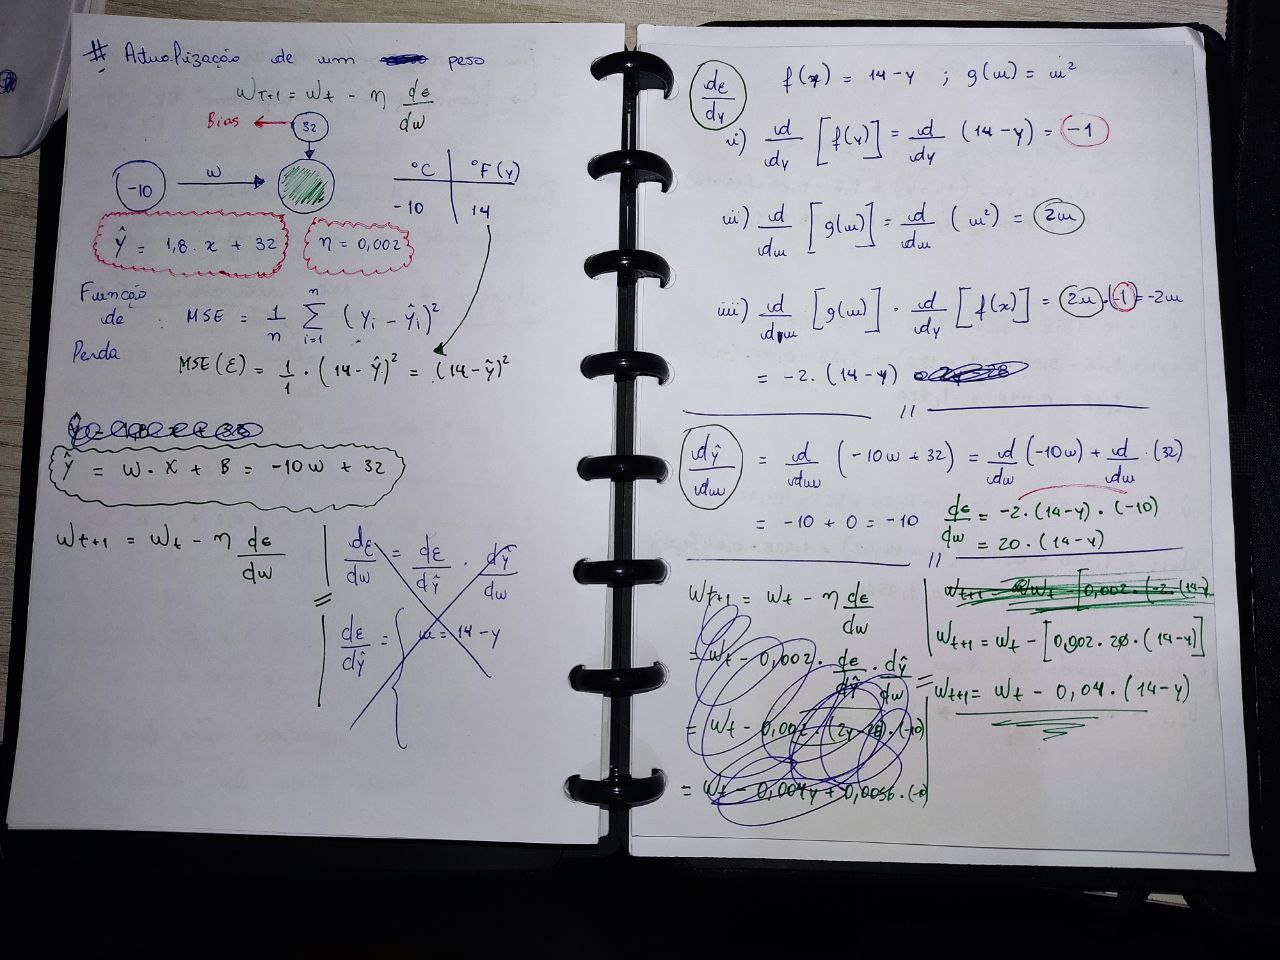 # Atualização de um peso
Wt+1 = Wt - η dε/dw
Bias ← 32
-10 w →
°C | °F (y)
-10 | 14
ŷ = 1,8 . x + 32
η = 0,002
Função de Perda
MSE = 1/n Σ i=1 n (yi - ŷi)²
MSE(ε) = 1/1 . (14 - ŷ)² = (14 - ŷ)²
ŷ = w . x + B = -10w + 32
Wt+1 = Wt - η dε/dw
dε/dw = dε/dŷ . dŷ/dw
dε/dŷ = { u = 14 - y
dε/dy
f(x) = 14 - y ; g(u) = u²
i) d/dy [f(y)] = d/dy (14 - y) = -1
ii) d/du [g(u)] = d/du (u²) = 2u
iii) d/du [g(u)] . d/dy [f(x)] = 2u . -1 = -2u
= -2 . (14 - y)
//
dŷ/dw = d/dw (-10w + 32) = d/dw (-10w) + d/dw . (32)
= -10 + 0 = -10
dε/dw = -2 . (14 - y) . (-10)
= 20 . (14 - y)
//
Wt+1 = Wt - η dε/dw
= Wt - 0,002 . dε/dŷ . dŷ/dw
= Wt - 0,002 . (2y - 28) . (-10)
= Wt - 0,004y + 0,0056 . (-10)
Wt+1 = Wt - [0,002 . 20 . (14 - y)]
Wt+1 = Wt - 0,04 . (14 - y)